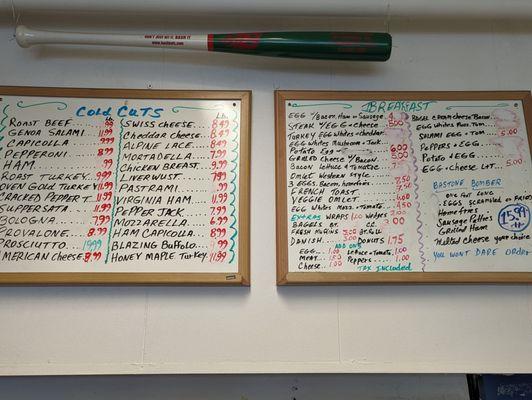 DON'T JUST HIT IT, BASH IT
COLD CUTS
Lb
ROAST BEEF
GENOA SALAMI 11.99
CAPICOLLA 9.99
PEPPERONI 8.99
HAM 9.99
ROAST TURKEY 9.99
OVEN GOLD TURKEY 11.99
CRACKED PEPPER T. 11.99
SUPPERSATA
BOLOGNA 7.99
PROVALONE 8.99
PROSCIUTTO 19.99
AMERICAN CHEESE 8.99
Lb
SWISS CHEESE 8.49
CHEDDAR CHEESE 8.49
ALPINE LACE 8.49
MORTADELLA 7.99
CHICKEN BREAST 9.99
LIVERWUST 7.99
PASTRAMI 9.99
VIRGINIA HAM 11.99
PEPPER JACK 7.99
MOZZARELLA 6.99
HAM CAPICOLLA 8.99
BLAZING BUFFALO 9.99
HONEY MAPLE TURKEY 11.99
BREAKFAST
EGG W/BACON, HAM OR SAUSAGE
STEAK W/EGG + CHEESE
TURKEY EGG WHITES + CHEDDAR
EGG WHITES MUSHROOM + JACK
POTATO EGG 6.00
GRILLED CHEESE W/BACON 5.00
BACON LETTUCE + TOMATO
OMLET WESTERN STYLE
3 EGGS, BACON, HOMEFRIES 7.50
FRENCH TOAST 7.50
VEGGIE OMLET 6.00
EGG WHITES MOZZ. TOMATO 4.50
EXTRAS WRAPS 1.00 WEDGES 3.00
BAGELS BY C.C. 2.00
FRESH MUFFINS 3.00
DANISH 3.00 DONUTS 1.75
ADD ONS
EGG 1.00 LETTUCE + TOMATO 1.00
MEAT 1.50 PEPPERS 1.00
CHEESE 1.00
TAX INCLUDED
BAGEL CREAM CHEESE BACON
EGG WHITES MOZZ. TOM.
SALAMI EGG + TOM 5.00
PEPPERS + EGG
POTATO + EGG
EGG + CHEESE LAT. 5.00
BOSTONE BOMBER
ONE FOOT LONG
EGGS, SCRAMBLED OR FRIED
HOMEFRIES
SAUSAGE PATTIES
GRILLED HAM
MELTED CHEESE YOUR CHOICE
15.99
YOU WONT DARE ORDER